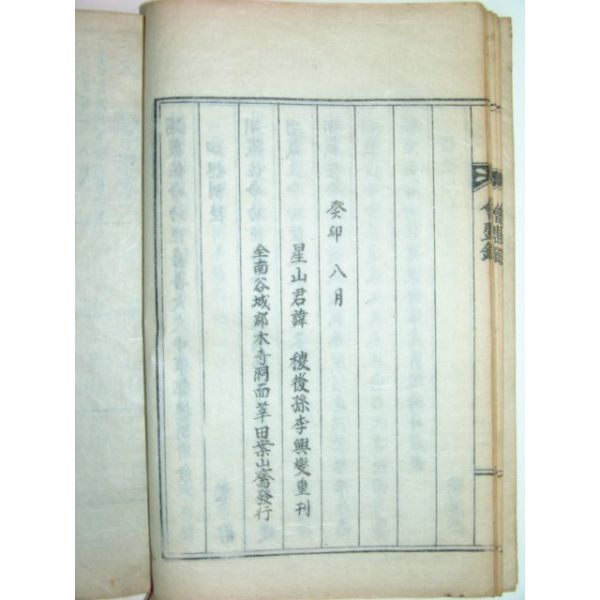 癸卯 八月
星山君諱 稷後孫李興燮重刊
全南谷城郡木寺洞面 田業山齋發行
會盟錄